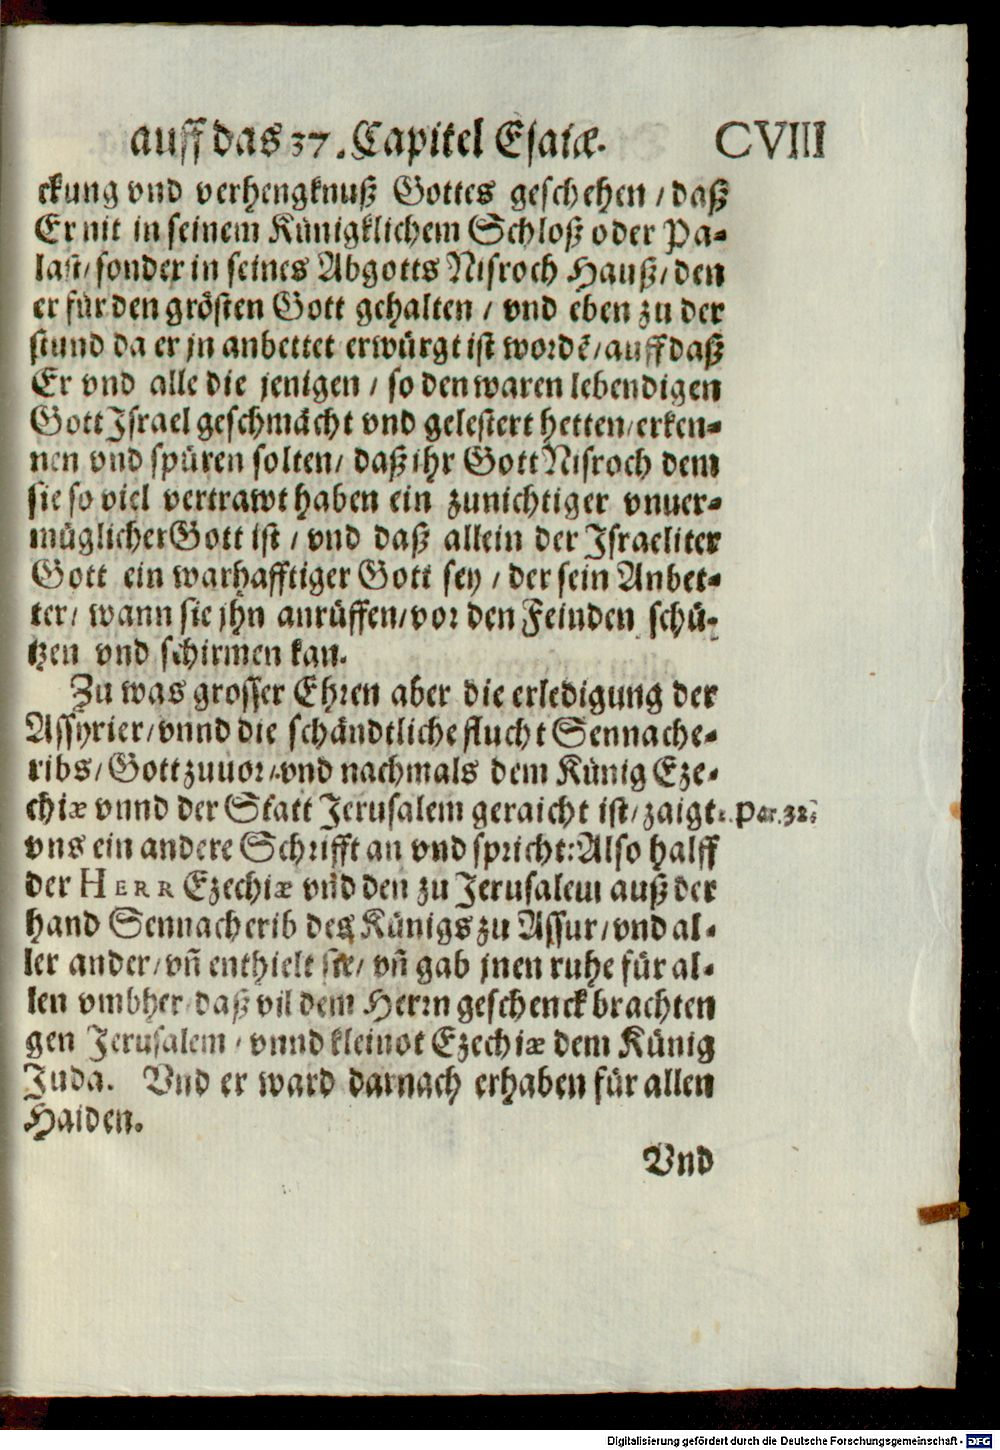 auff das 37. Capitel Esaiæ. CVIII
ckung vnd verhengknuß Gottes geschehen / daß
Er nit in seinem Künigklichem Schloß oder Pa-
last / sonder in seines Abgotts Nisroch Hauß / den
er für den grösten Gott gehalten / vnd eben zu der
stund da er jn anbettet erwürgt ist wordẽ / auff daß
Er vnd alle die jenigen / so den waren lebendigen
Gott Israel geschmächt vnd gelestert hetten / erken-
nen vnd spüren solten / daß ihr Gott Nisroch dem
sie so viel vertrawt haben ein zunichtiger vnuer-
müglicher Gott ist / vnd daß allein der Israeliter
Gott ein warhafftiger Gott sey / der sein Anbet-
ter / wann sie jhn anrüffen / vor den Feinden schü-
tzen vnd schirmen kan.
Zu was grosser Ehren aber die erledigung der
Assyrier / vnnd die schändtliche flucht Sennache-
ribs / Gott zuuor / vnd nachmals dem Künig Eze-
chiæ vnnd der Statt Jerusalem geraicht ist / zaigt
2. Par. 32.
vns ein andere Schrifft an vnd spricht: Also halff
der HERR Ezechiæ vñd den zu Jerusalem auß der
hand Sennacherib des Künigs zu Assur / vnd al-
ler ander / vñ enthielt sie / vñ gab jnen ruhe für al-
len vmbher daß vil dem Herrn geschenck brachten
gen Jerusalem / vnnd kleinot Ezechiæ dem Künig
Juda. Vnd er ward darnach erhaben für allen
Haiden.
Vnd
Digitalisierung gefördert durch die Deutsche Forschungsgemeinschaft - DFG